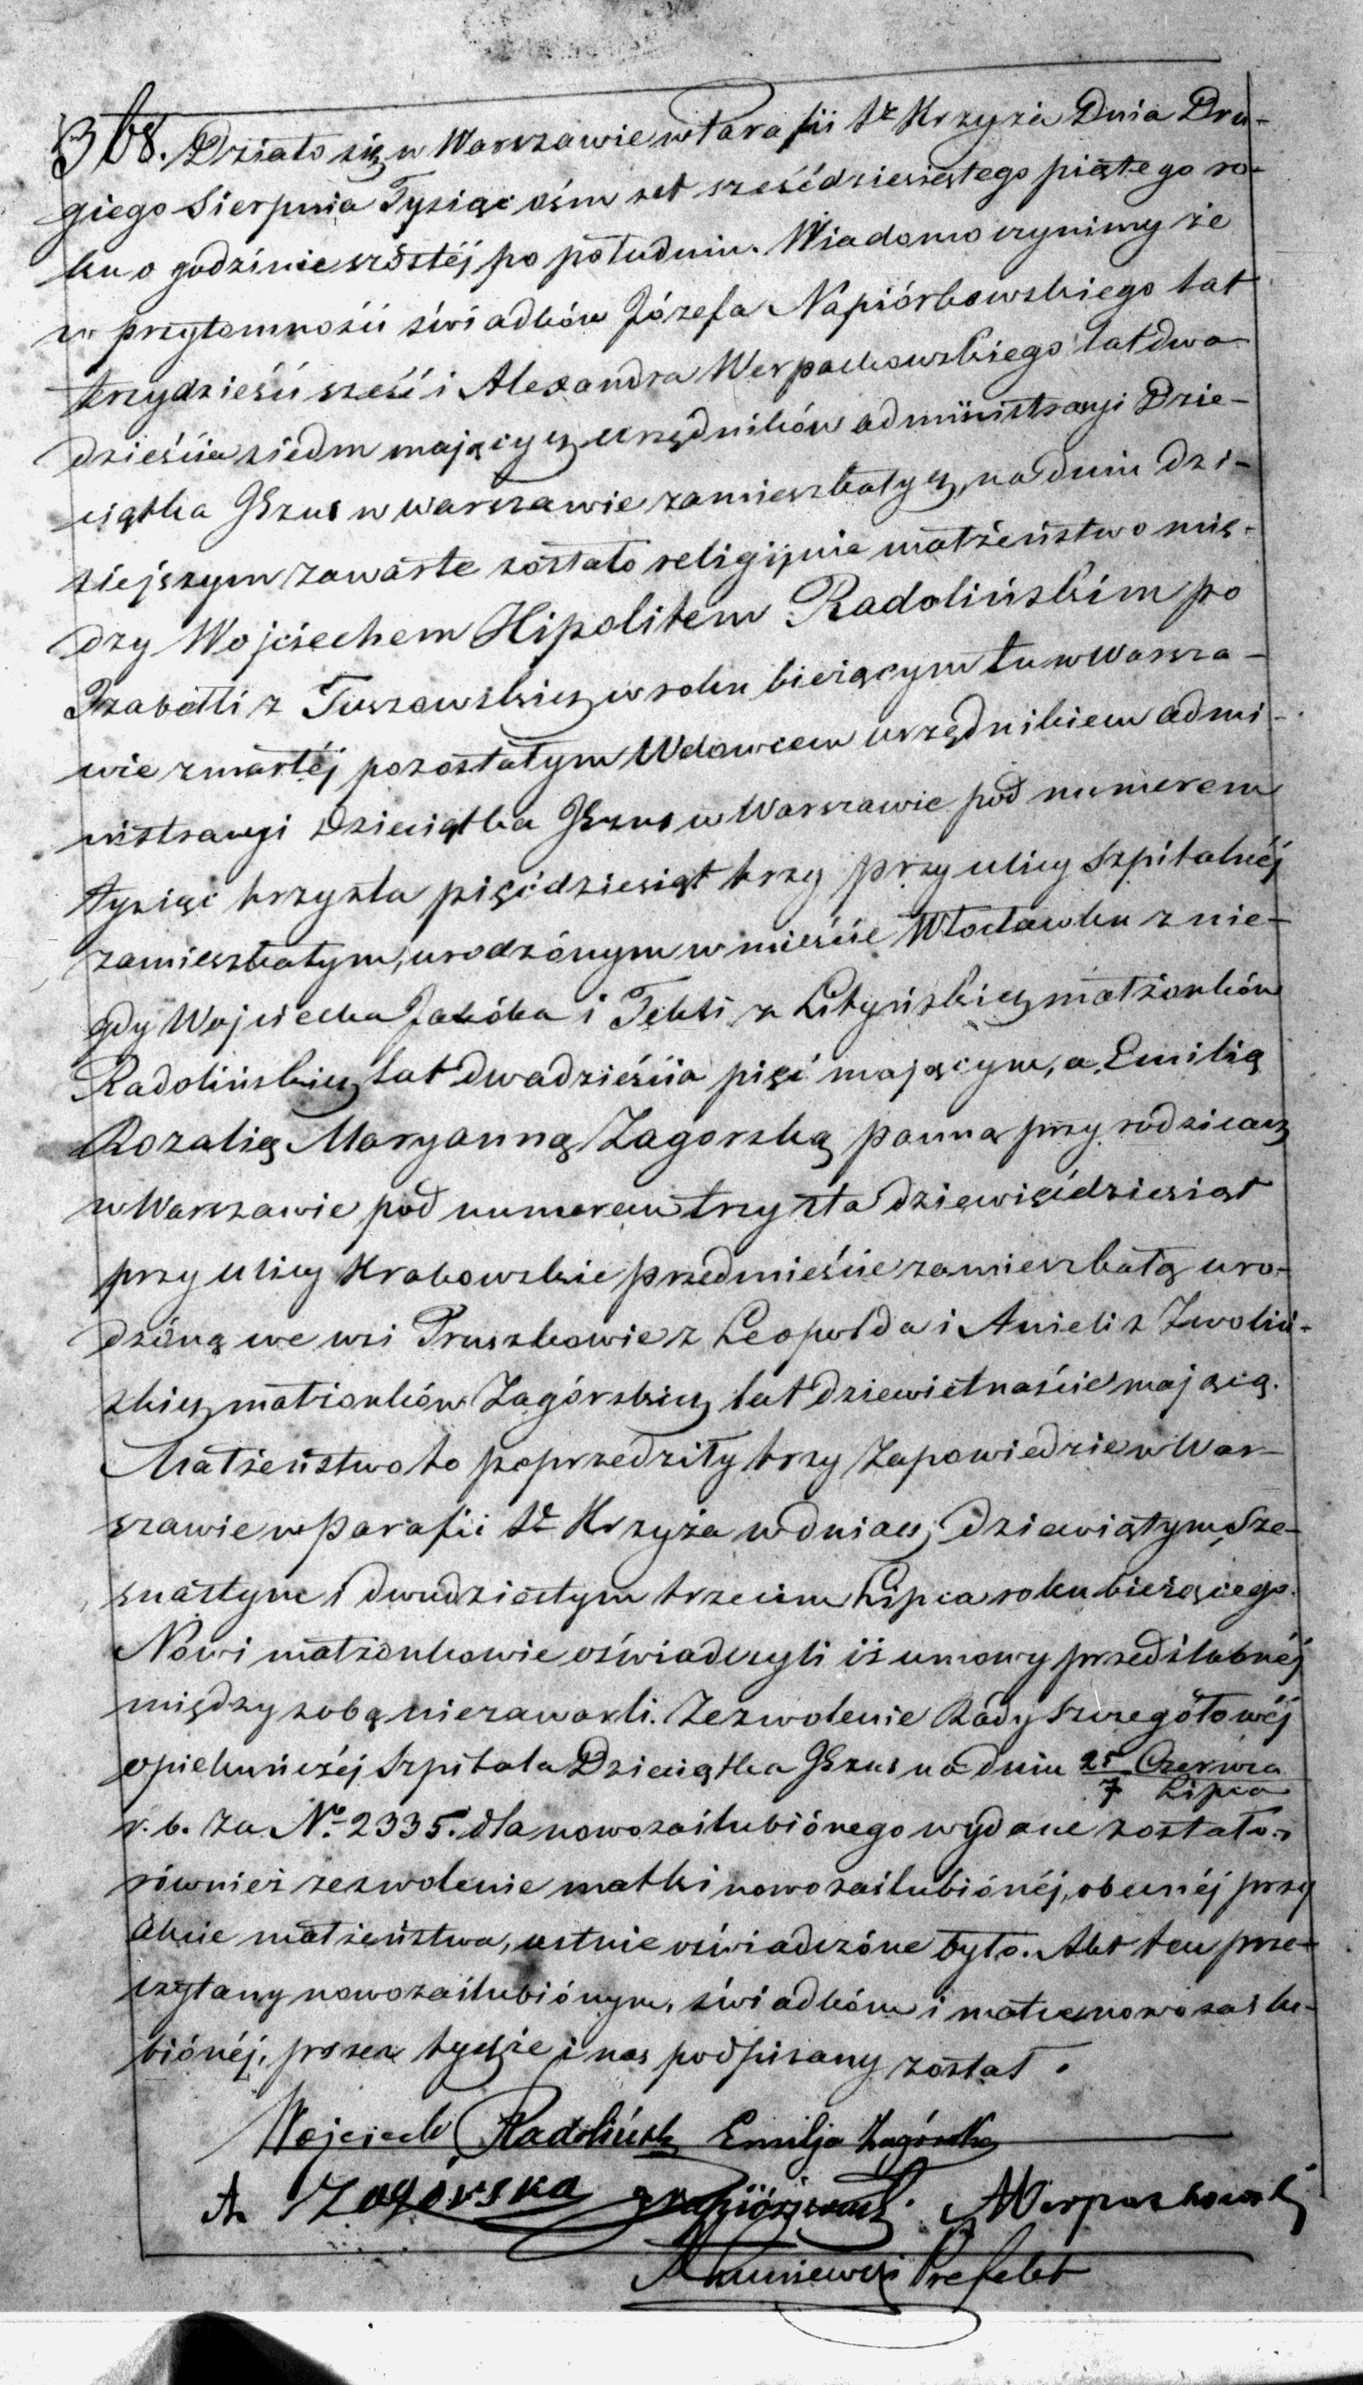 368. Działo się w Warszawie w Parafii Sgo Krzyża Dnia Dru-
giego Sierpnia Tysiąc ośm set sześćdziesiątego piątego ro-
ku o godzinie szóstéj po południu. Wiadomo czynimy że
w przytomności świadków Józefa Napiórkowskiego lat
trzydzieści sześć i Alexandra Werpachowskiego lat dwa-
dzieścia siedm mających urzędników administracyi Dzie-
ciątka Jezus w Warszawie zamieszkałych, na dniu dzi-
siejszym zawarte zostało religijnie małżeństwo mię-
dzy Wojciechem Hipolitem Radolińskim po
Izabelli z Tuszewskich w roku bieżącym tu w Warsza-
wie zmarłéj pozostałym Wdowcem urzędnikiem admi-
nistracyi Dzieciątka Jezus w Warszawie pod numerem
tysiąc trzysta pięćdziesiąt trzy przy ulicy Szpitalnéj
zamieszkałym, urodzónym w mieście Włocławku z nie-
gdy Wojciecha Jakóba i Tekli z Lityńskich małżonków
Radolińskich, lat dwadzieścia pięć mającym, a Emilią
Rozalią Maryanną Zagorską panną przy rodzicach
w Warszawie pod numerem trzysta dziewięćdziesiąt
przy ulicy Krakowskie przedmieście zamieszkałą uro-
dzóną we wsi Pruszkowie z Leopolda i Anieli z Zwoliń-
skich małżonków Zagórskich lat dziewietnaście mającą.
Małżeństwo to poprzedziły trzy Zapowiedzie w War-
szawie w parafii Sgo Krzyża w dniach dziewiątym, Sze-
snastym i dwudziestym trzecim Lipca roku bieżącego.
Nowi małżonkowie oświadczyli iż umowy przedślubnéj
między sobą niezawarli. Zezwolenie Rady Szczegółowéj
opiekuńczéj Szpitala Dzieciątka Jezus na dniu 25 Czerwca
7 Lipca
r. b. za No. 2335. dla nowozaślubiónego wydane zostało.
również zezwolenie matki nowozaślubiónéj, obecnéj przy
akcie małżeństwa, ustnie oświadczóne było. Akt ten prze-
czytany nowozaślubiónym, świadkóm i matce nowozaślu-
biónéj, przez tychże i nas podpisany został.
Wojciech Radoliński Emilja Zagórska
A. Zagórska Napiórkowski. AWerpachowski
Prefekt